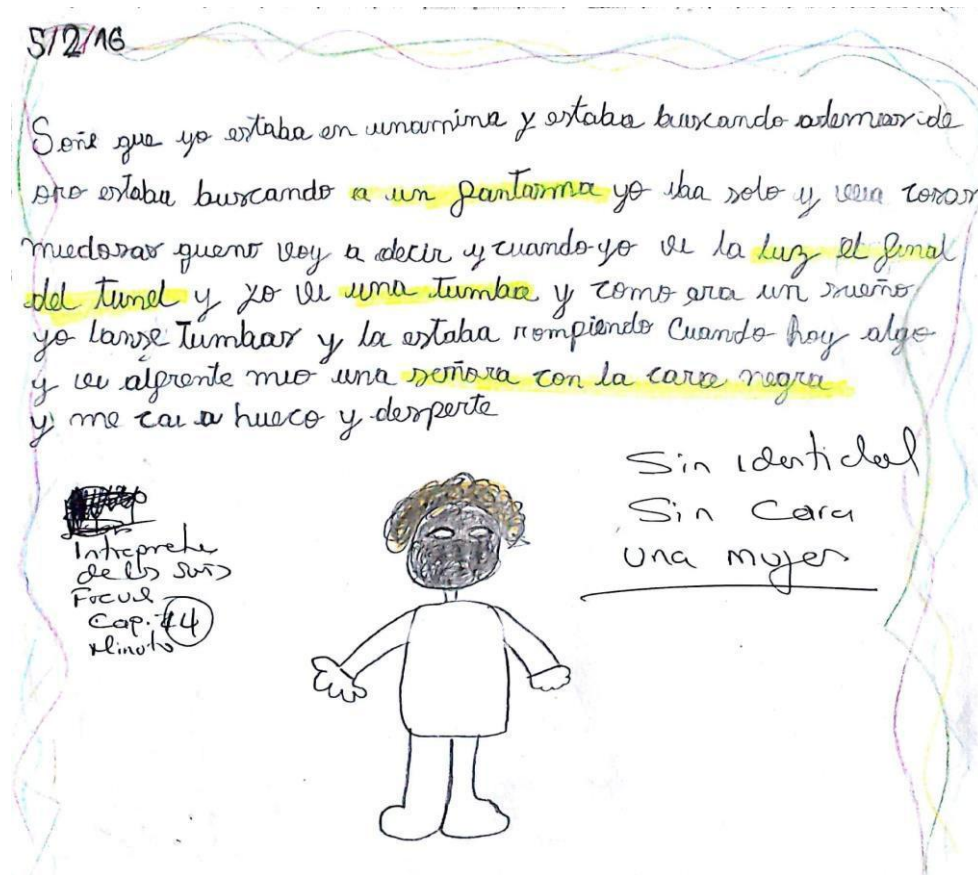 5/2/16
Soñe que yo estaba en unamina y estaba buscando ademas de
oro estaba buscando a un fantasma yo iba solo y veia cosas
miedosas queno voy a decir y cuando yo vi la luz el final
del tunel y yo vi una tumba y como era un sueño
yo lanse tumbas y la estaba rompiendo Cuando hoy algo
y vi alfrente mio una señora con la cara negra
y me cai a hueco y desperte
Sin identidad
Sin Cara
una mujer
de los
Cap. 4